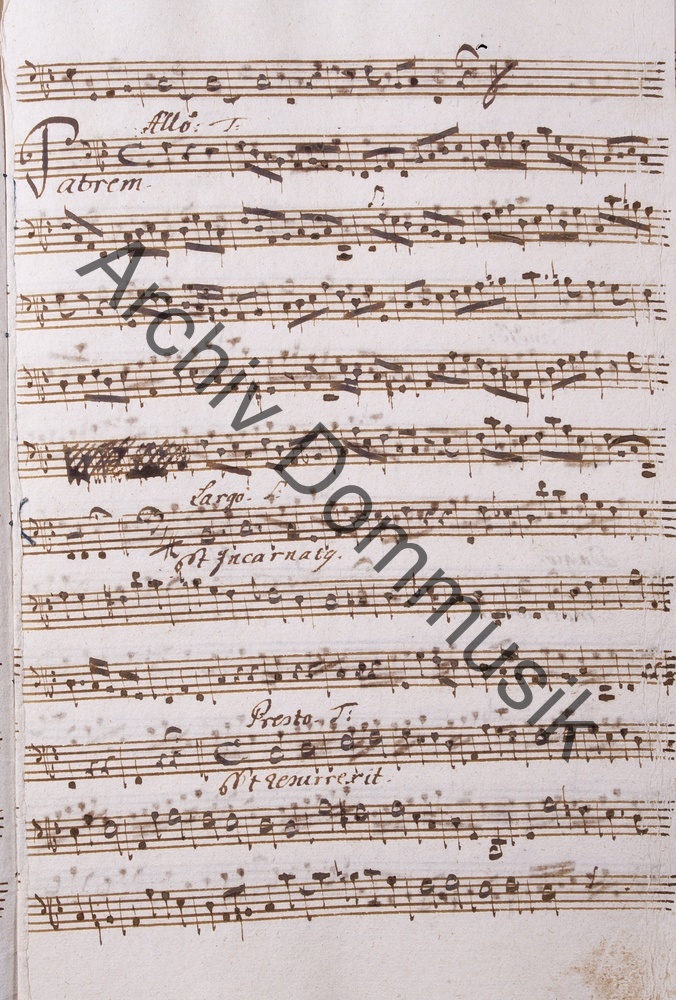 Allo: T:
Patrem.
Largo. T:
Et Incarnatq.
Presto. T:
Et resurrexit.
Archiv Dommusik